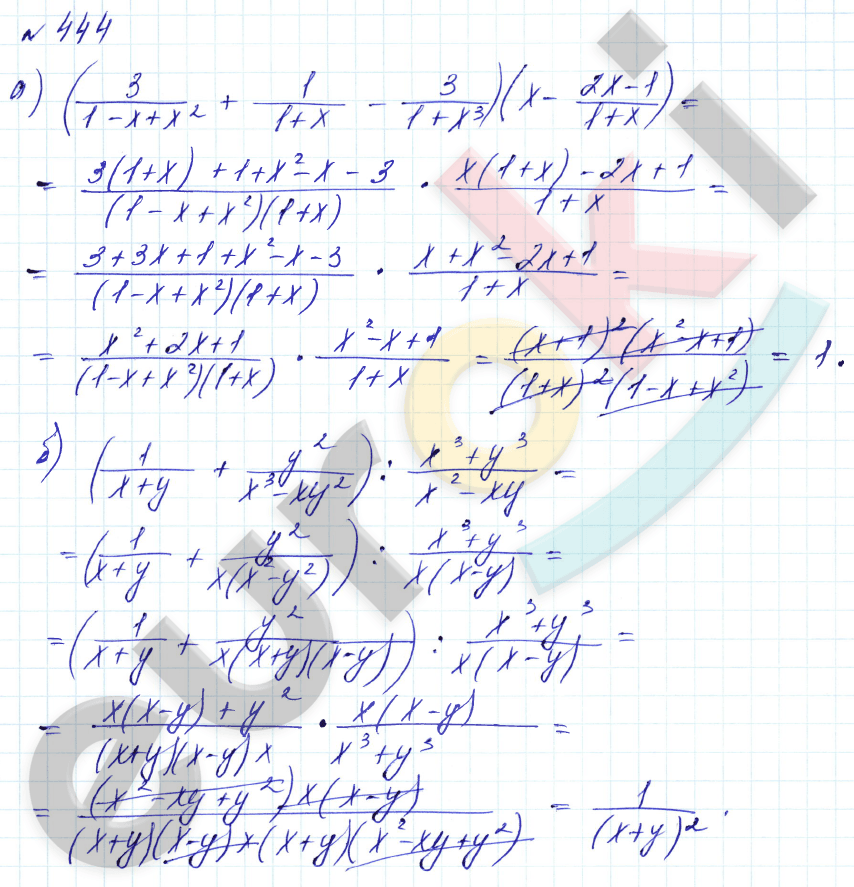 № 444
а) (3/(1-x+x²) + 1/(1+x) - 3/(1+x³))(x - (2x-1)/(1+x)) =
= (3(1+x) + 1+x²-x-3)/((1-x+x²)(1+x)) · (x(1+x)-2x+1)/(1+x) =
= (3+3x+1+x²-x-3)/((1-x+x²)(1+x)) · (x+x²-2x+1)/(1+x) =
= (x²+2x+1)/((1-x+x²)(1+x)) · (x²-x+1)/(1+x) = ((x+1)²(x²-x+1))/((1+x)²(1-x+x²)) = 1.
б) (1/(x+y) + y²/(x³-xy²)) : (x³+y³)/(x²-xy) =
= (1/(x+y) + y²/(x(x²-y²))) : (x³+y³)/(x(x-y)) =
= (1/(x+y) + y²/(x(x+y)(x-y))) : (x³+y³)/(x(x-y)) =
= (x(x-y)+y²)/((x+y)(x-y)x) · (x(x-y))/(x³+y³) =
= ((x²-xy+y²)x(x-y))/((x+y)(x-y)x(x+y)(x²-xy+y²)) = 1/(x+y)².
euroki